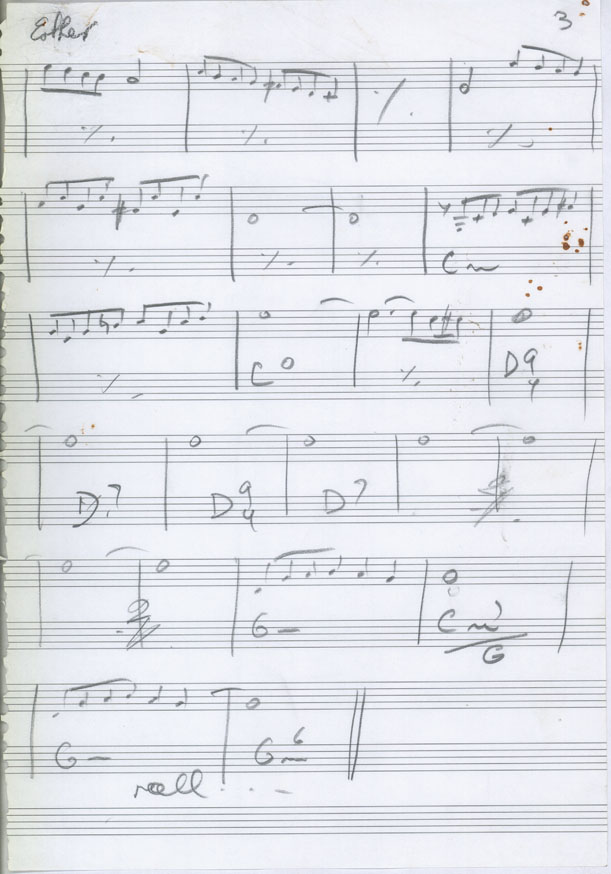 Esther 3
Cm
C° D9 4
D7 D9 4 D7
G- Cm G
G- Gm6
rall . . . -